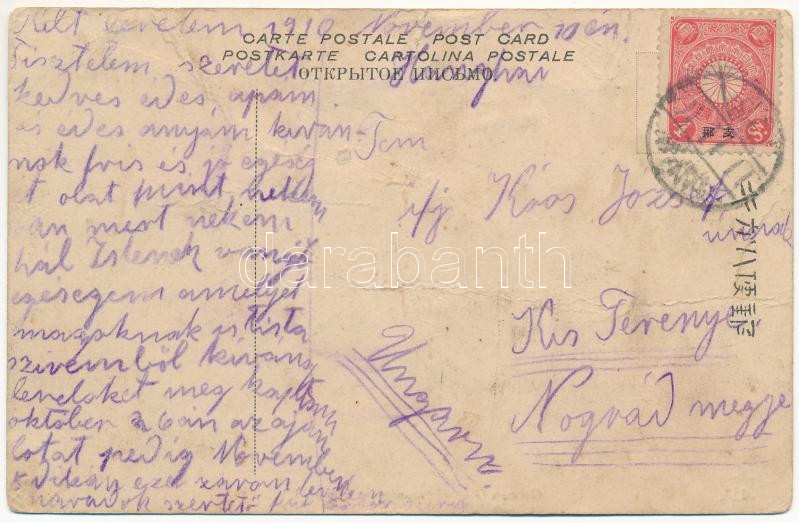 Kelt levelem 1910 November 10 én.
CARTE POSTALE - POST CARD
POSTKARTE CARTOLINA POSTALE
ОТКРЫТОЕ ПИСЬМО
Shanghai
Tisztelem szeretet
kedves édes apám
és édes anyám kiván-
nok fris és jó egésség
et olat mint nekem
van mert nékem
hál Istenek van jó
egésegem amelyet
magoknak is tista
szivemből kivánok
leveloket meg kaptam
októben 26án az aján
lotat pedig November
5 dikán ezel zárom levelem
maradok szerető fiai
Tem
ifj Koós József
úrnak
Kis Terenye
Nográd megye
Ungarn.
支那
darabanth